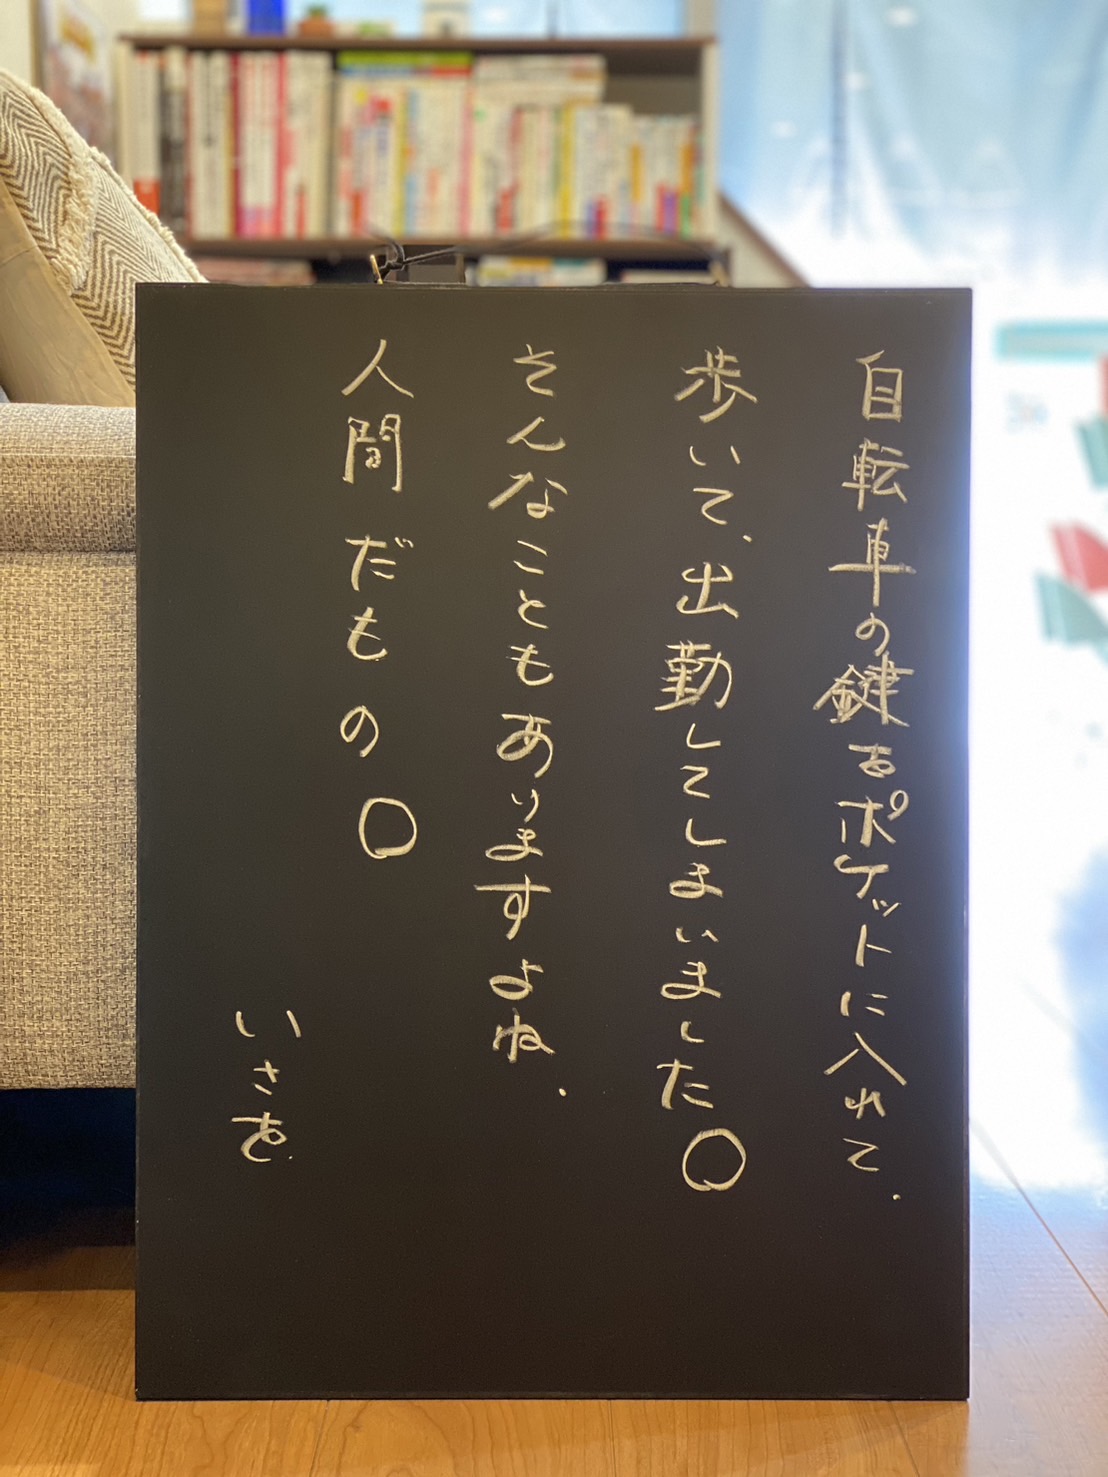 自転車の鍵をポケットに入れて、
歩いて、出勤してしまいました。
そんなこともありますよね、
人間だもの。
いさを